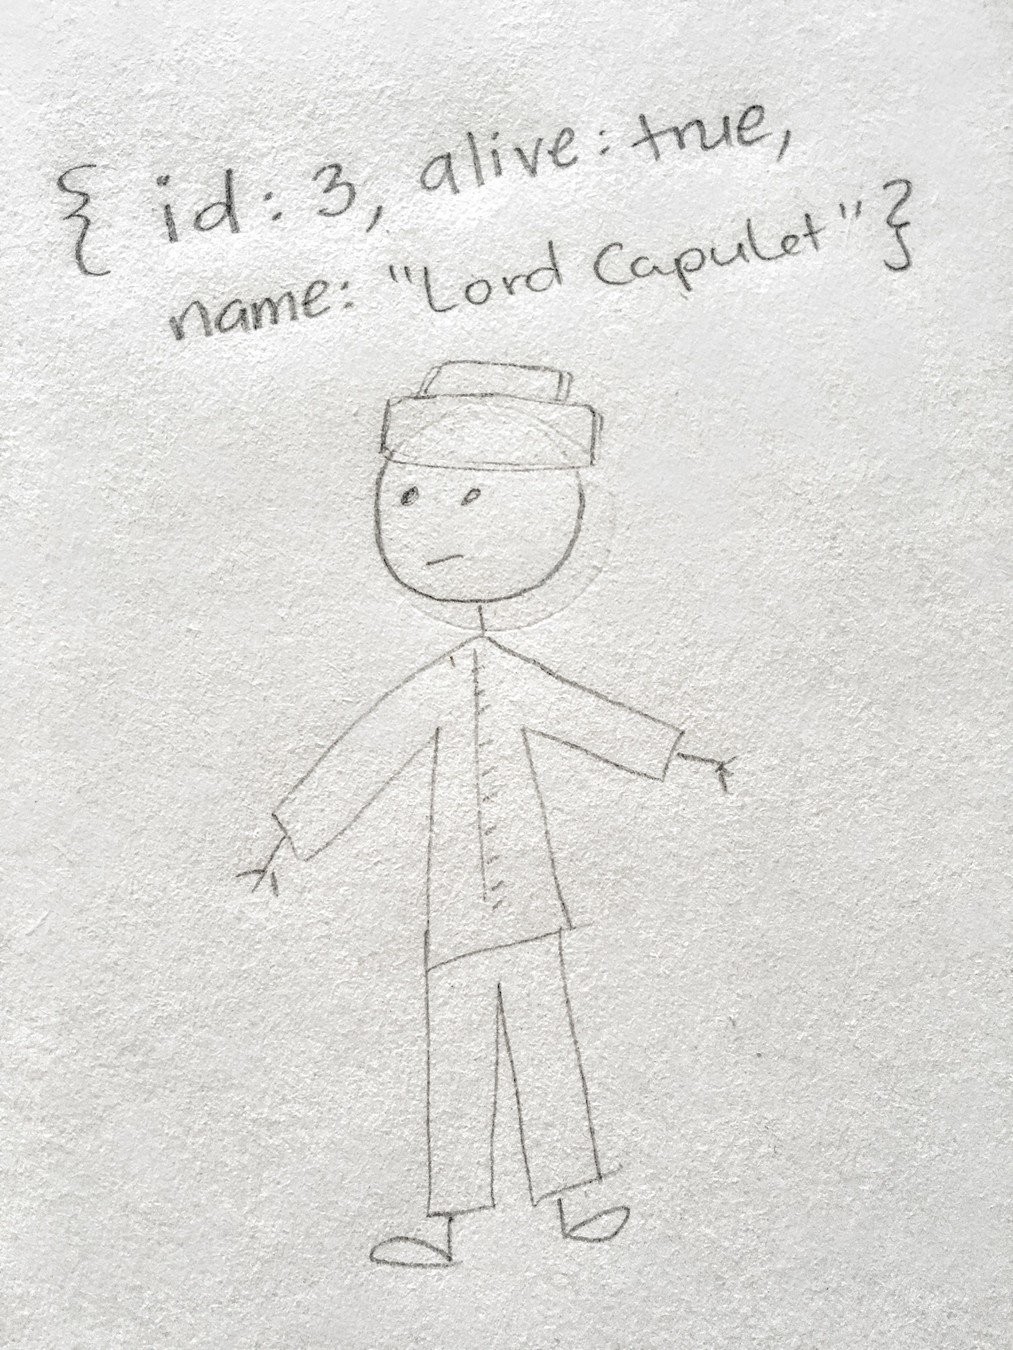 { id: 3, alive: true,
name: "Lord Capulet"}